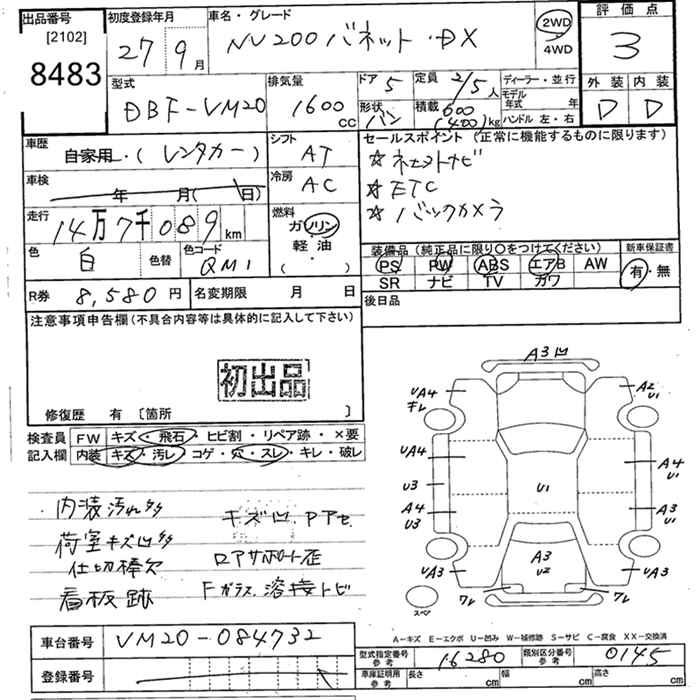 出品番号
[2102]
8483
初度登録年月
27年9月
車名・グレード
NV200 バネット・DX
2WD
4WD
評価点
3
外装 内装
D D
型式
DBF-VM20
排気量
1600 CC
ドア 5
形状 バン
定員 2/5人
積載 600 (400)kg
ディーラー・並行
モデル年式 年
ハンドル 左・右
車歴
自家用・(レンタカー)
シフト
AT
車検
年 月(日)
冷房
AC
走行
14万7千089km
燃料
ガソリン
軽・油
( ・ )
色
白
色替
色コード
QM1
セールスポイント (正常に機能するものに限ります)
☆ネオストナビ
☆ETC
☆バックカメラ
装備品(純正品に限り○をつけてください)
PS PW ABS エアB AW
SR ナビ TV カワ
新車保証書
有・無
R券 8,580円
名変期限 月 日
後日品
注意事項申告欄(不具合内容等は具体的に記入して下さい)
初出品
修復歴 有 [箇所 ]
検査員記入欄
FW キズ・飛石・ヒビ割・リペア跡・×要
内装 キズ・汚レ・コゲ・穴・スレ・キレ・破レ
・内装汚れ多
荷室キズ凹多
仕切棒欠
看板跡
キズ凹、Pアセ
ロアサポート歪
Fガラス、溶接トビ
A3凹
UA4
キレ
A2
U1
UA4
A4
U1
U3
U1
A4
U3
A3
U1
UA3
A3
U2
UA3
ワレ
ワレ
スペア
A－キズ E－エクボ U－凹み W－補修跡 S－サビ C－腐食 XX－交換済
車台番号
VM20-084732
登録番号
型式指定番号 参考
16280
類別区分番号 参考
0145
車庫証明用 参考
長さ cm
幅 cm
高さ cm